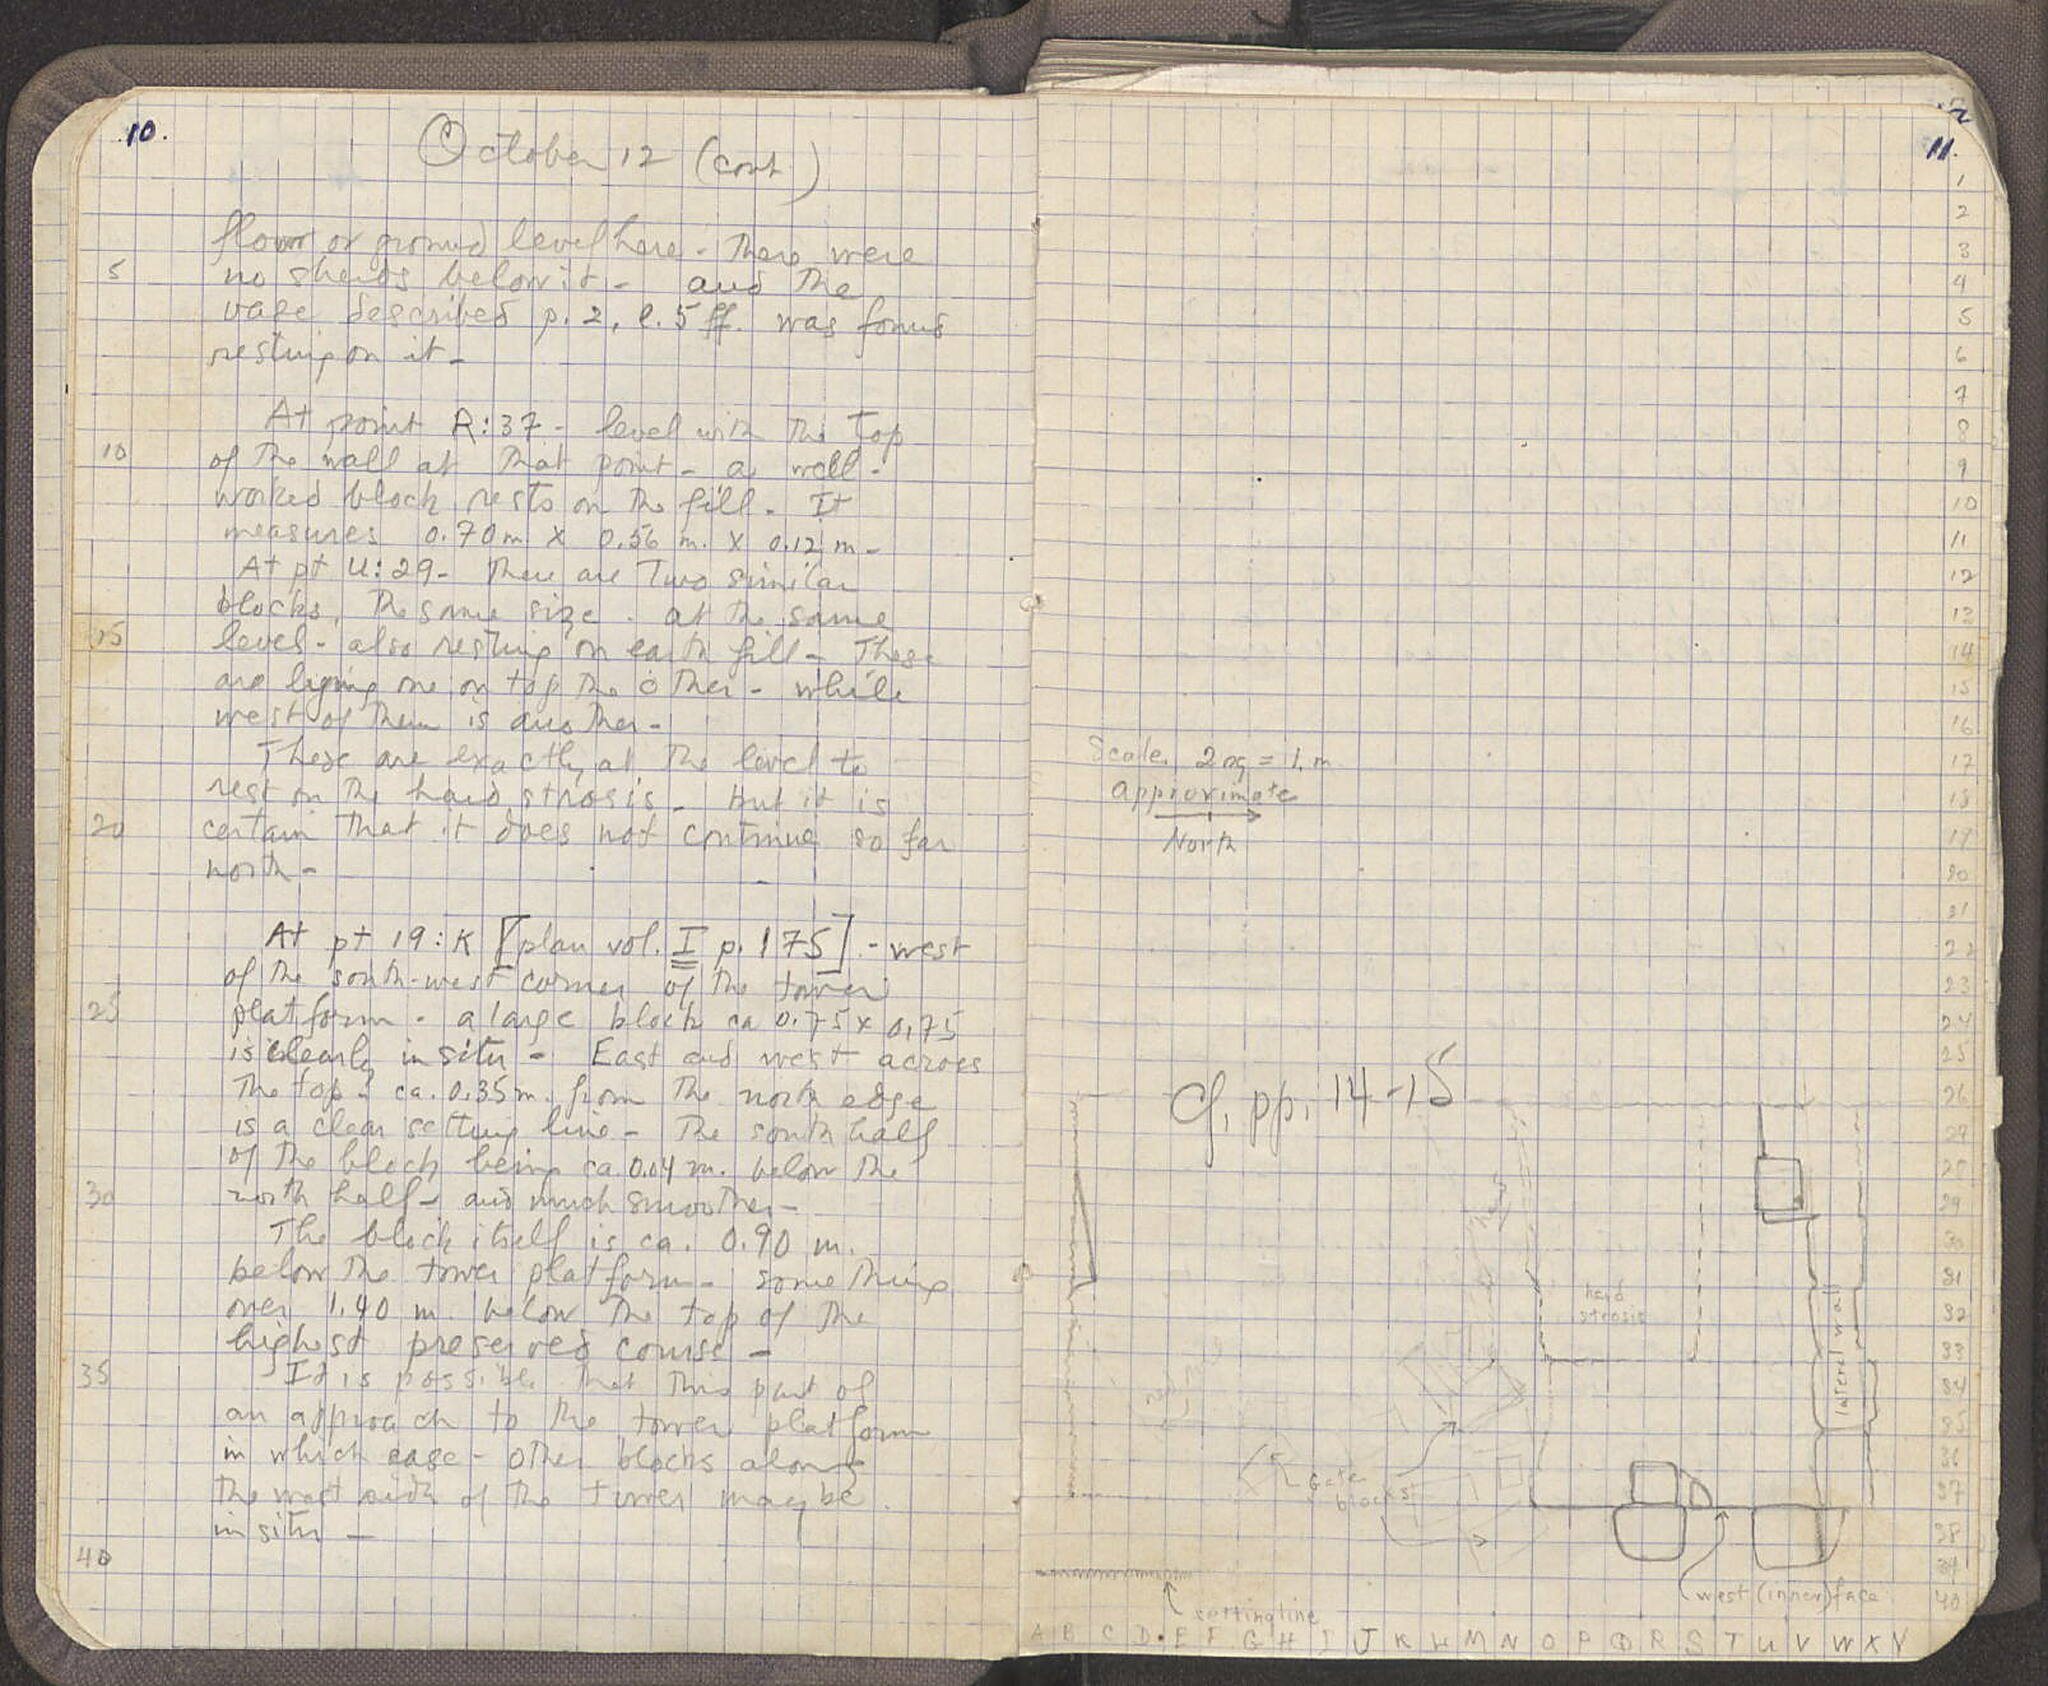 10.
October 12 (cont.)
floor or ground level here - There were
5 no sherds below it - and the
vase described p. 2, l. 5 ff. was found
resting on it -
At point R:37 - level with the top
10 of the wall at that point - a well-
worked block rests on the fill - It
measures 0.70 m x 0.56 m. x 0.12 m -
At pt U:29 - There are two similar
blocks, the same size - at the same
15 level - also resting on earth fill - These
are lying one on top the other - while
west of them is another -
These are exactly at the level to
rest on the hard strosis - but it is
20 certain that it does not continue so far
north -
At pt 19:K [plan vol. I p. 175] - west
of the south-west corner of the tower
25 platform - a large block ca 0.75 x 0.75
is clearly in situ - East and west across
the top - ca. 0.35 m. from the north edge
is a clear setting line - The south half
of the block being ca 0.04 m. below the
30 north half - and much smoother -
The block itself is ca. 0.90 m.
below the tower platform - something
over 1.40 m. below the top of the
highest preserved course -
35 It is possible that this part of
an approach to the tower platform
in which case - other blocks along
the west side of the tower may be
in situ -
40
11.
1
2
3
4
5
6
7
8
9
10
11
12
13
14
15
16
17
18
19
20
21
22
23
24
25
26
27
28
29
30
31
32
33
34
35
36
37
38
39
40
Scale 2 sq = 1. m
approximate
North
Cf. pp. 14-15
hard
strosis
lateral wall
Gate
blocks
west (inner) face
cutting line
A B C D E F G H I J K L M N O P Q R S T U V W X Y